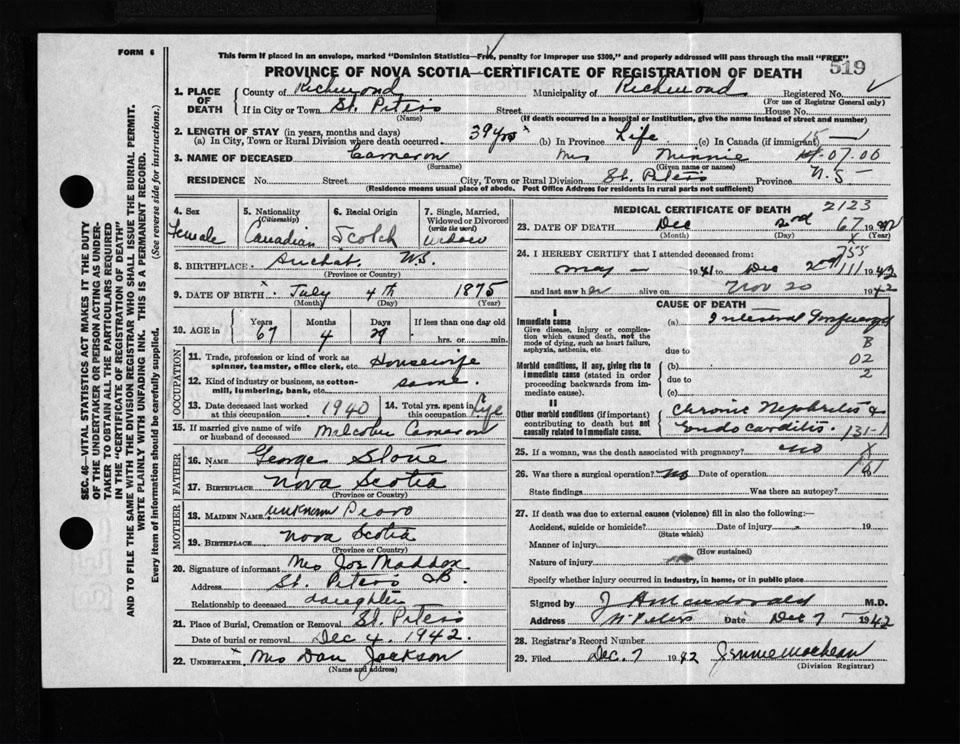 FORM 6
This form if placed in an envelope, marked "Dominion Statistics—Free, penalty for improper use $300," and properly addressed will pass through the mail "FREE"
519
PROVINCE OF NOVA SCOTIA—CERTIFICATE OF REGISTRATION OF DEATH
1. PLACE OF DEATH
County of Richmond Municipality of Richmond Registered No.
(For use of Registrar General only)
If in City or Town St. Peters Street House No.
(Name) (If death occurred in a hospital or institution, give the name instead of street and number)
2. LENGTH OF STAY (in years, months and days)
(a) In City, Town or Rural Division where death occurred 39 yrs (b) In Province Life (c) In Canada (if immigrant) 15—
3. NAME OF DECEASED Cameron Mrs Minnie 07.06
(Surname) (Given name or names)
RESIDENCE No. Street City, Town or Rural Division St. Peters Province N.S.
(Residence means usual place of abode. Post Office Address for residents in rural parts not sufficient)
SEC. 46—VITAL STATISTICS ACT MAKES IT THE DUTY
OF THE UNDERTAKER OR PERSON ACTING AS UNDER-
TAKER TO OBTAIN ALL THE PARTICULARS REQUIRED
IN THE "CERTIFICATE OF REGISTRATION OF DEATH"
AND TO FILE THE SAME WITH THE DIVISION REGISTRAR WHO SHALL ISSUE THE BURIAL PERMIT.
WRITE PLAINLY WITH UNFADING INK. THIS IS A PERMANENT RECORD.
Every item of information should be carefully supplied. (See reverse side for instructions.)
4. Sex
Female
5. Nationality
(Citizenship)
Canadian
6. Racial Origin
Scotch
7. Single, Married, Widowed or Divorced
(write the word)
Widow
8. BIRTHPLACE Arichat N.S.
(Province or Country)
9. DATE OF BIRTH July 4th 1875
(Month) (Day) (Year)
10. AGE in Years Months Days If less than one day old
67 4 29 hrs. or min.
OCCUPATION
11. Trade, profession or kind of work as spinner, teamster, office clerk, etc. Housewife
12. Kind of industry or business, as cotton-mill, lumbering, bank, etc. same.
13. Date deceased last worked at this occupation 1940
14. Total yrs. spent in this occupation Life
15. If married give name of wife or husband of deceased Malcolm Cameron
FATHER
16. Name George Stone
17. Birthplace Nova Scotia
(Province or Country)
MOTHER
18. Maiden Name unknown
19. Birthplace Nova Scotia
(Province or Country)
20. Signature of informant Mrs Joe Maddox
Address St. Peter's C.B.
Relationship to deceased daughter
21. Place of Burial, Cremation or Removal St. Peters
Date of burial or removal Dec 4, 1942.
22. Undertaker Mrs Dan Jackson
(Name and Address)
MEDICAL CERTIFICATE OF DEATH 2123
23. DATE OF DEATH Dec 2nd 67 1942
(Month) (Day) (Year)
24. I HEREBY CERTIFY that I attended deceased from: 755
May — 1941 to Dec 2nd 111 1942
and last saw her alive on Nov 20 1942
CAUSE OF DEATH
I
Immediate cause
Give disease, injury or complication which caused death, not the mode of dying, such as heart failure, asphyxia, asthenia, etc.
(a)
due to B
Morbid conditions, if any, giving rise to immediate cause (stated in order proceeding backwards from immediate cause).
(b) 02
due to 2
(c)
II
Other morbid conditions (if important) contributing to death but not causally related to immediate cause.
Chronic Nephritis &
Endocarditis. 131-1
25. If a woman, was the death associated with pregnancy? no
26. Was there a surgical operation? no Date of operation 19
State findings Was there an autopsy?
27. If death was due to external causes (violence) fill in also the following:—
Accident, suicide or homicide? Date of injury 19
(State which)
Manner of injury
(How sustained)
Nature of injury
Specify whether injury occurred in industry, in home, or in public place
Signed by M.D.
Address St Peters Date Dec 7 1942
28. Registrar's Record Number
29. Filed Dec. 7 1942
(Division Registrar)